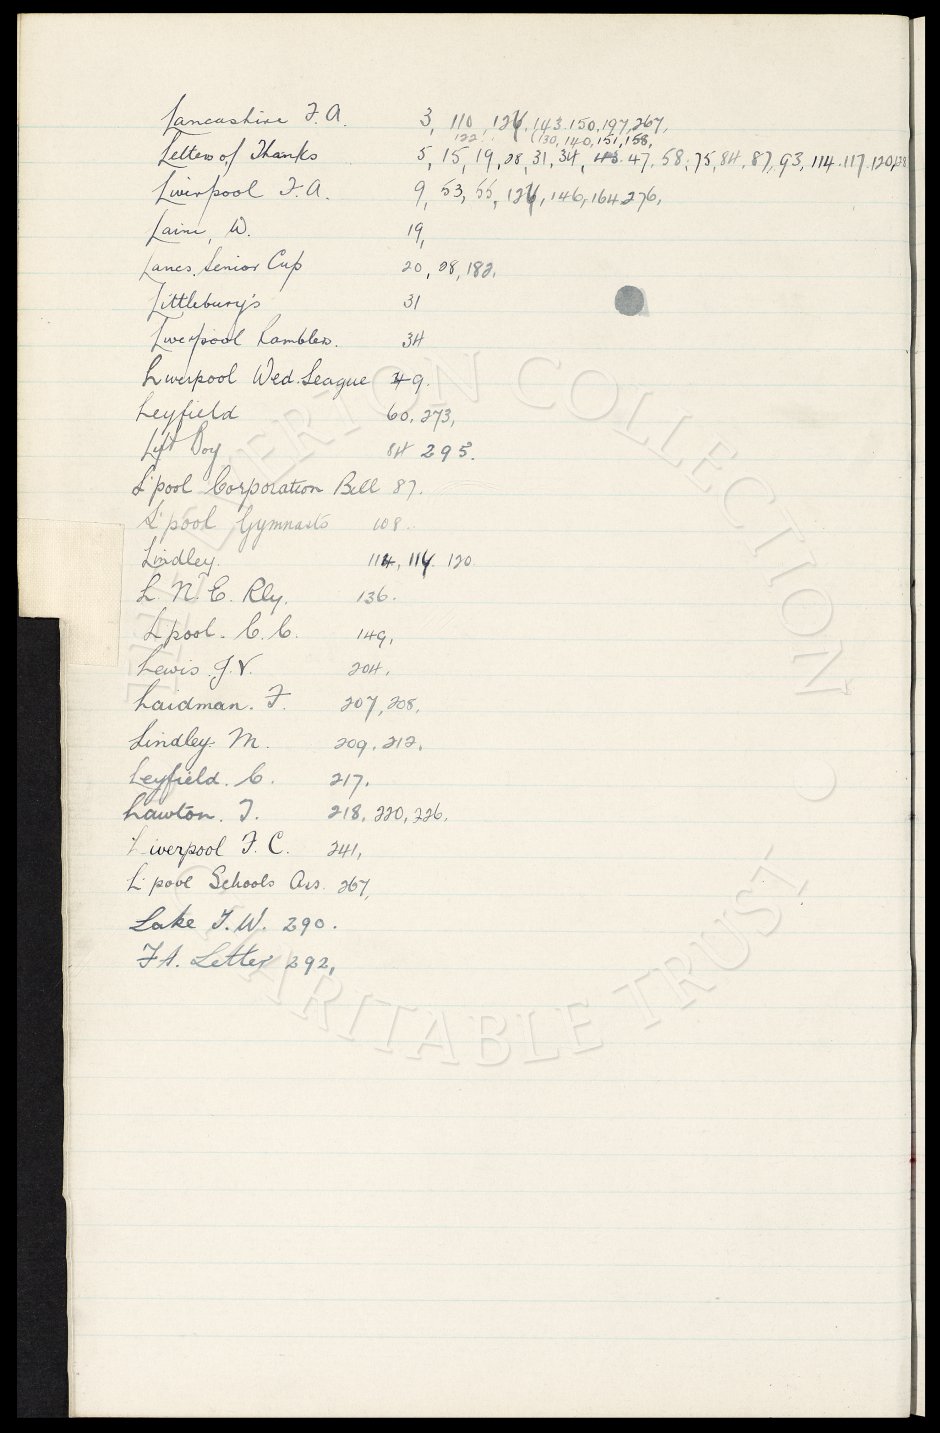 Lancashire F.A. 3, 110, 126, 143. 150, 197, 267,
122 (130, 140, 151, 158,
Letters of Thanks 5, 15, 19, 28, 31, 34, 43 47, 58, 75, 84, 87, 93, 114. 117. 120,
Liverpool F.A. 9, 53, 55, 126, 146, 164, 276,
W. 19,
Lancs. Senior Cup 20, 28, 182,
Littlebury's 31
Liverpool Ramblers. 34
Liverpool Wed. League 49.
Leyfield 60, 273,
Lift Boy 84 295.
L'pool Corporation Bill 87.
L'pool Gymnasts 108.
Lindley. 114, 117. 120
L. N. E. Rly. 136.
L'pool. C. C. 149,
Lewis. J.V. 204,
Laidman. F. 207, 208,
Lindley. M. 209, 212,
Leyfield. C. 217,
Lawton. T. 218, 220, 226,
Liverpool F. C. 241,
L'pool Schools Ass. 267,
Lake T.W. 290.
F.A. Letter 292,
THE EVERTON COLLECTION • CHARITABLE TRUST •